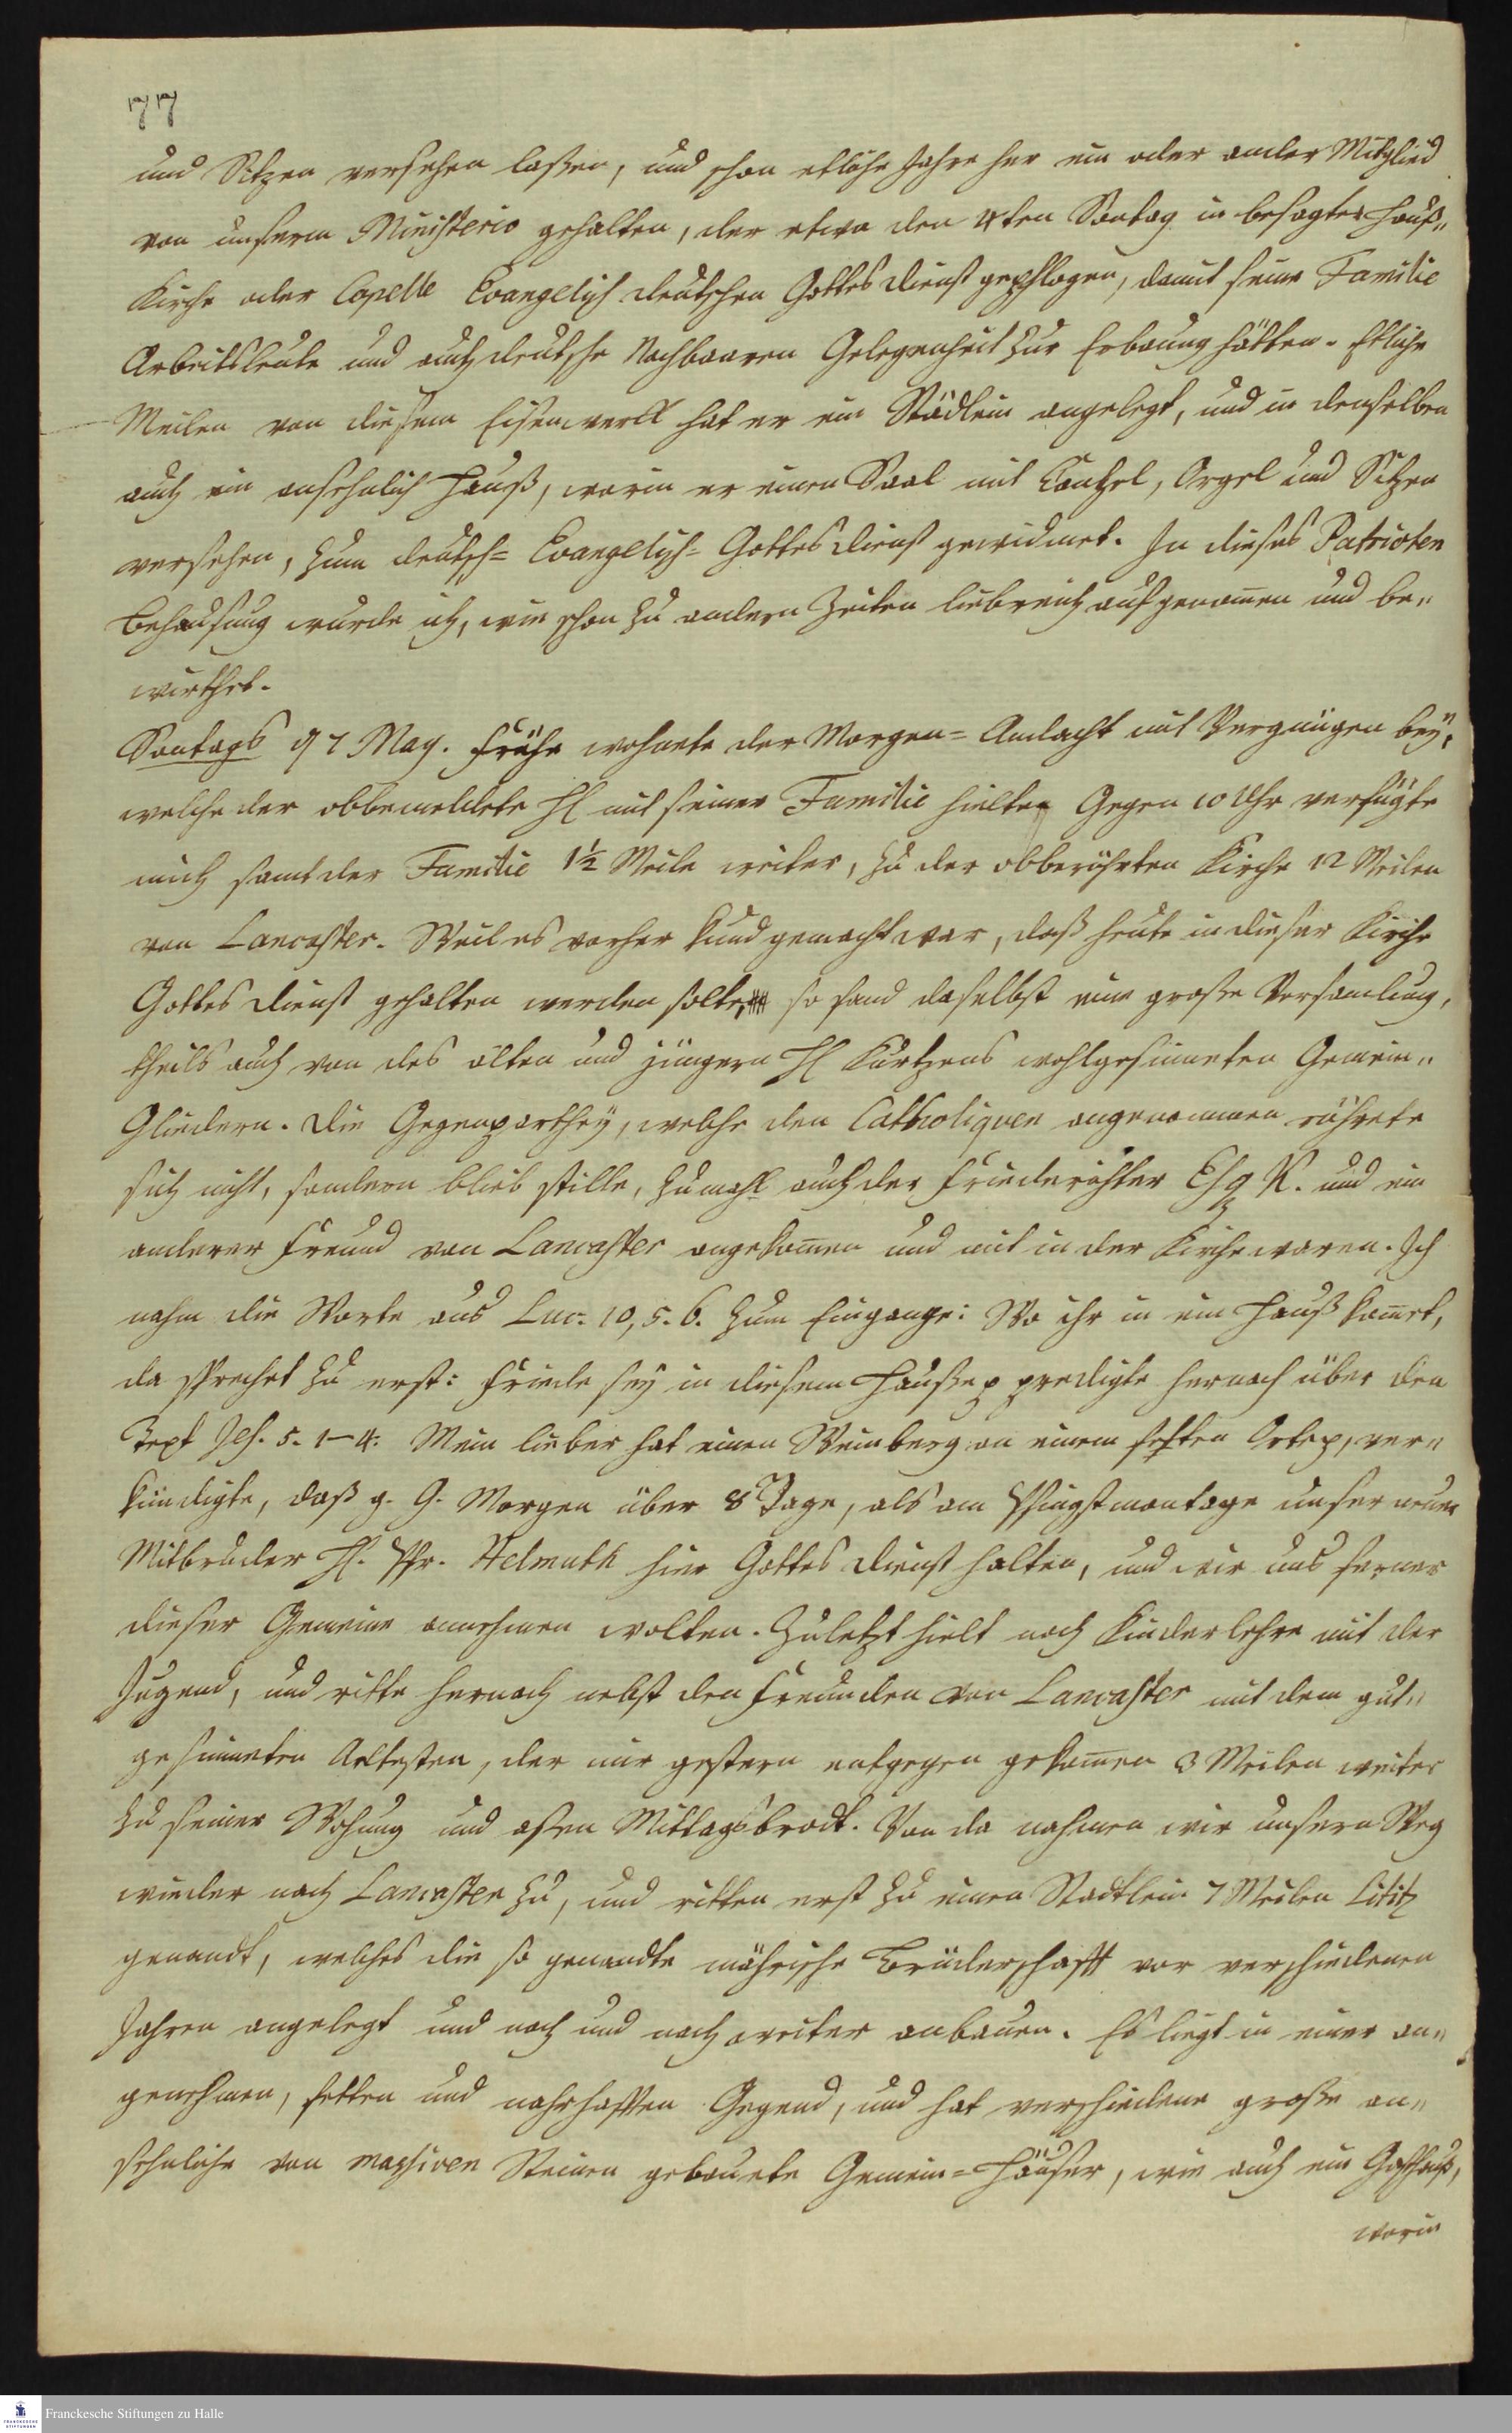 77
und Sitzen versehen laßen, und schon etliche Jahre her ein oder ander Mitglied
von unserm Ministerio gehalten, der etwa den 4ten Sontag in besagter Hauß„
Kirche oder Capelle Evangelisch deutschen Gottesdienst gepflogen, damit seine Familie
Arbeitsleute und auch deutsche Nachbaaren Gelegenheit zur Erbauung hätten. Etliche
Meilen von diesem Eisenwerck hat er ein Städlein angelegt, und in demselben
auch ein ansehnlich Hauß, worin er einen Saal mit Cantzel, Orgel und Sitzen
versehen, zum deutsch= Evangelisch= Gottesdienst gewidmet. In dieses Patrioten
Behausung wurde ich, wie schon zu andern Zeiten liebreich aufgenom̄en und be„
wirthet.
Sontags 7 May. Frühe wohnete der Morgen= Andacht mit Vergnügen bey,
welche der obbemeldete H mit seiner Familie hielte. Gegen 10 Uhr verfügte
mich samt der Familie 1½ Meile weiter, zu der obberührten Kirche 12 Meilen
von Lancaster. Weil es vorher kund gemacht war, daß heute in dieser Kirche
Gottesdienst gehalten werden solte, so fand daselbst eine große Versamlung,
theils auch von des alten und jüngern H Kurtzens wohlgesinneten Gemein„
Gliedern. Die Gegenparthey, welche den Catholiquen angenommen rührete
sich nicht, sondern blieb stille, zumahl auch der Friederichter Esq K. und ein
anderer Freund von Lancaster angekom̄en und mit in der Kirche waren. Ich
nahm die Worte aus Luc. 10, 5. 6. zum Eingange: Wo ihr in ein Hauß kom̄et,
da sprechet zu erst: Friede sey in diesem Hause p predigte hernach über den
Text Jes. 5. 1–4. Mein lieber hat einen Weinberg an einem fetten Orte p, ver„
kündigte, daß g. G. Morgen über 8 Tage, als am Pfingstmontage unser neuer
Mitbruder H. Pfr. Helmuth hier Gottesdienst halten, und wir uns ferner
dieser Gemeine annehmen wolten. Zuletzt hielt noch Kinderlehre mit der
Jugend, und ritte hernach nebst den Freunden von Lancaster mit dem gut„
gesinneten Aeltesten, der mir gestern entgegen gekom̄en 3 Meilen weiter
zu seiner Wohnung und aßen Mittagsbrodt. Von da nahmen wir unsern Weg
wieder nach Lancaster zu, und ritten erst zu einen Stadtlein 7 Meilen Lititz
genandt, welches die so genandte mährische Brüderschafft vor verschiedenen
Jahren angelegt und nach und nach weiter anbauen. Es liegt in einer an„
genehmen, fetten und nahrhafften Gegend, und hat verschiedene große an„
sehnliche von massiven Steinen gebauete Gemein=Häuser, wie auch ein Gasthauß,
worin
Franckesche Stiftungen zu Halle
FRANCKESCHE
STIFTUNGEN